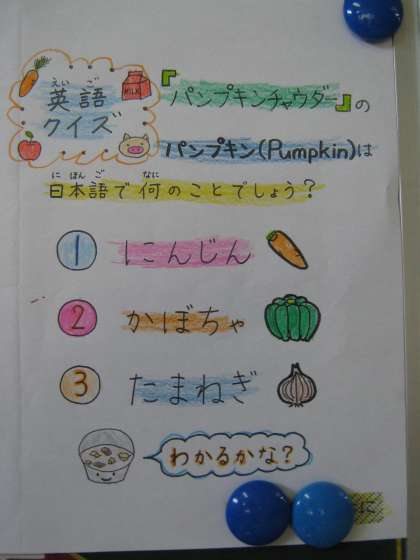 英語
クイズ
えいご
MILK
『パンプキンチャウダー』の
パンプキン(Pumpkin)は
にほんご なに
日本語で何のことでしょう？
1 にんじん
2 かぼちゃ
3 たまねぎ
わかるかな？
に